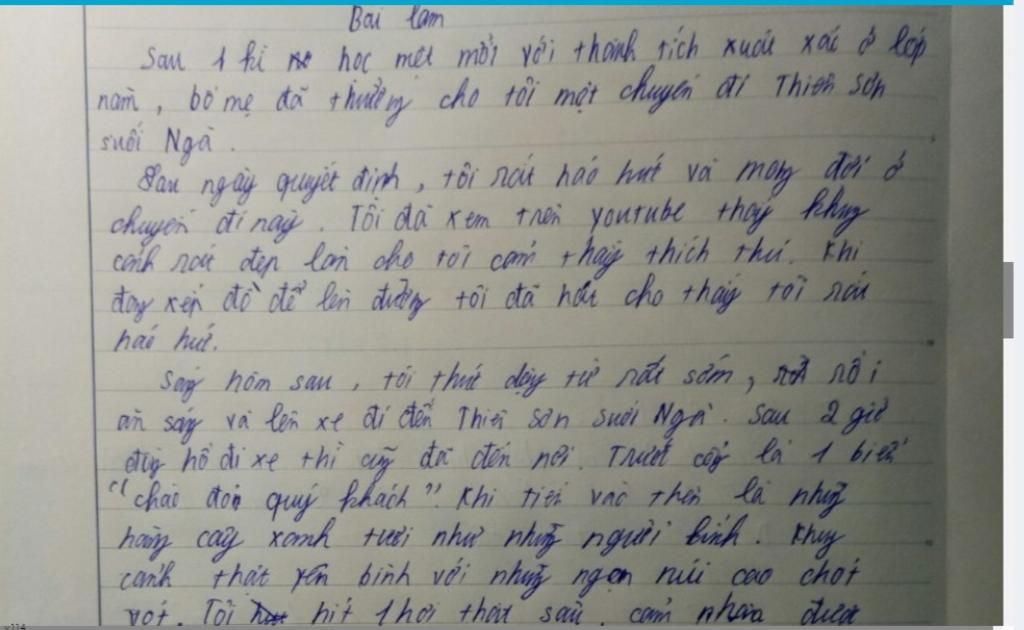 Bài làm
Sau 1 kì học mệt mỏi với thành tích xuất xắc ở lớp
năm, bố mẹ đã thưởng cho tôi một chuyến đi Thiên Sơn
suối Ngà.
Sau ngày quyết định, tôi rất háo hức và mong đợi ở
chuyến đi này. Tôi đã xem trên youtube thấy khung
cảnh rất đẹp làm cho tôi cảm thấy thích thú. Khi
đang xếp đồ để lên đường tôi đã hát cho thấy tôi rất
háo hức.
Sáng hôm sau, tôi thức dậy từ rất sớm, rồi
ăn sáng và lên xe đi đến Thiên Sơn suối Ngà. Sau 2 giờ
đồng hồ đi xe thì cũng đã đến nơi. Trước cổng là 1 biển
"chào đón quý khách". Khi tiến vào thêm là những
hàng cây xanh tươi như những người lính. Khung
cảnh thật yên bình với những ngọn núi cao chót
vót. Tôi hít 1 hơi thật sâu, cảm nhận được
x114